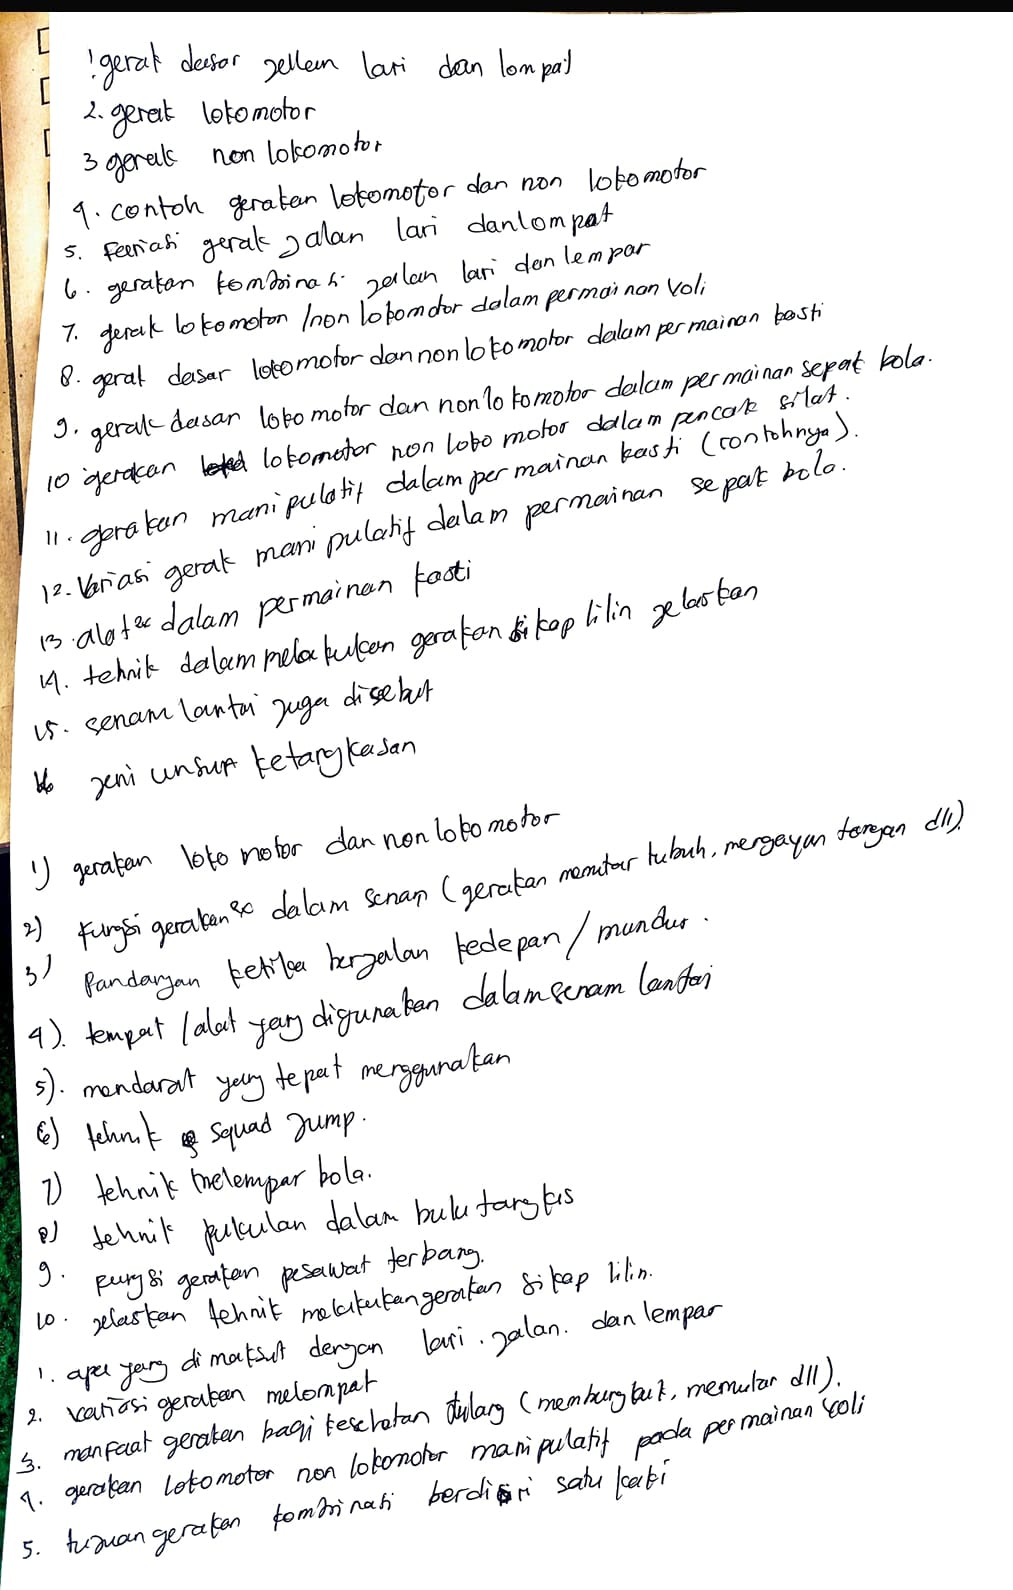 1 gerak dasar jalan lari dan lompat
2. gerak lokomotor
3 gerak non lokomotor
4. contoh gerakan lokomotor dan non lokomotor
5. Variasi gerak jalan lari dan lompat
6. gerakan kombinasi jalan lari dan lempar
7. gerak lokomotor / non lokomotor dalam permainan Voli
8. gerak dasar lokomotor dan non lokomotor dalam permainan kasti
9. gerak dasar lokomotor dan non lokomotor dalam permainan sepak bola.
10 gerakan lokomotor non lokomotor dalam pencak silat.
11. gerakan manipulatif dalam permainan kasti (contohnya).
12. Variasi gerak manipulatif dalam permainan sepak bola.
13. alat dalam permainan kasti
14. tehnik dalam melakukan gerakan sikap lilin jelaskan
15. senam lantai juga disebut
16 jeni unsur ketangkasan
1) gerakan lokomotor dan non lokomotor
2) Fungsi gerakan dalam senam (gerakan memutar tubuh, mengayun tangan dll).
3) Pandangan ketika berjalan kedepan / mundur.
4). tempat / alat yang digunakan dalam senam lantai
5). mendarat yang tepat menggunakan
6) tehnik squad jump.
7) tehnik melempar bola.
8) tehnik pukulan dalam bulu tangkis
9. Fungsi gerakan pesawat terbang.
10. jelaskan tehnik melakukan gerakan sikap lilin.
1. apa yang di maksut dengan lari. jalan. dan lempar
2. variasi gerakan melompat
3. manfaat gerakan bagi kesehatan tulang (membungkuk, memutar dll).
4. gerakan lokomotor non lokomotor manipulatif pada permainan voli
5. tujuan gerakan kombinasi berdiri satu kaki